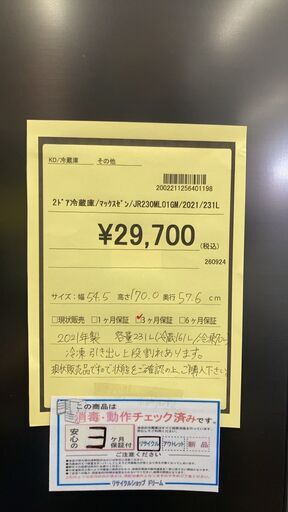 KD/冷蔵庫 その他
2002211256401198
2ドア冷蔵庫/マックスゼン/JR230ML01GM/2021/231L
¥29,700
(税込)
260924
サイズ：幅 54.5 高さ 170.0 奥行 57.6 cm
□現状販売 □1ヶ月保証 □3ヶ月保証 □6ヶ月保証
2021年製 容量231L(冷蔵161L/冷凍70
冷凍引き出し上段割れあります。
現状販売品ですので状態をご確認の上、ご購入下さい
この商品は
消毒・動作チェック済みです。
安心の 3 ヶ月保証付
リサイクル アウトレット 新品
ご注意ください
リサイクルショップ ドリーム